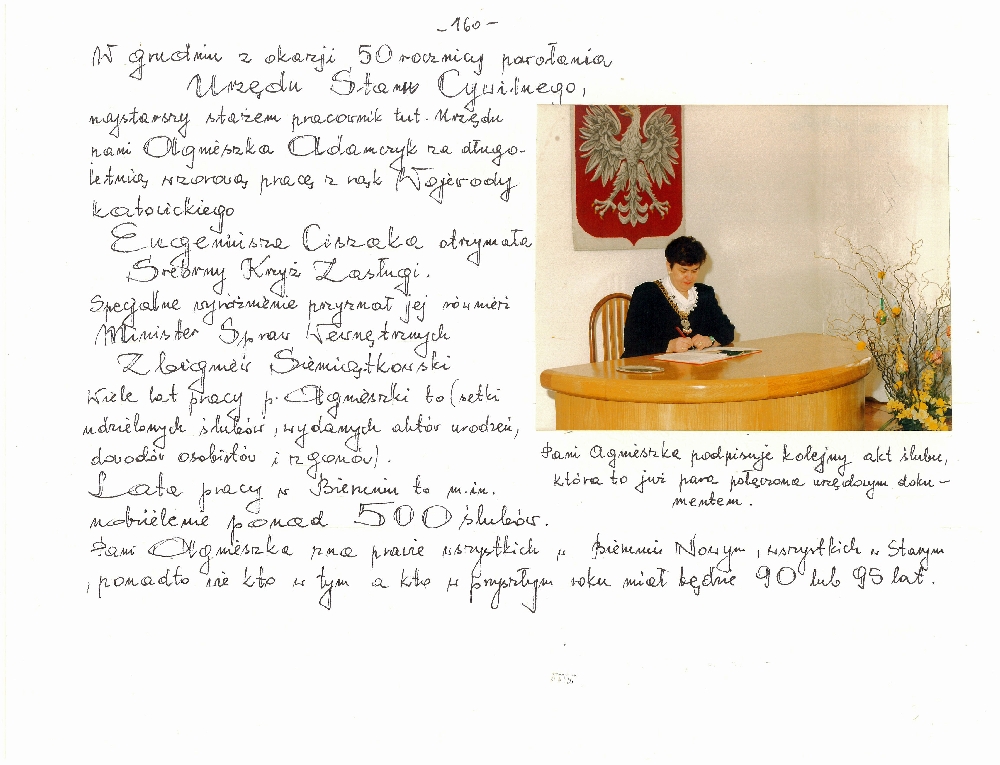 - 160 -
W grudniu z okazji 50 rocznicy powołania
Urzędu Stanu Cywilnego,
najstarszy stażem pracownik tut. Urzędu
pani Agnieszka Adamczyk za długo-
letnią wzorową pracę z rąk Wojewody
katowickiego
Eugeniusza Ciszaka otrzymała
Srebrny Krzyż Zasługi.
Specjalne wyróżnienie przyznał jej również
Minister Spraw Wewnętrznych
Zbigniew Siemiątkowski
Wiele lat pracy p. Agnieszki to (setki
udzielonych ślubów, wydanych aktów urodzeń,
dowodów osobistów i zgonów).
Lata pracy w Bieruniu to m.in.
udzielenie ponad 500 ślubów.
Pani Agnieszka zna prawie wszystkich w Bieruniu Nowym, wszystkich w Starym
, ponadto wie kto w tym a kto w przyszłym roku miał będzie 90 lub 95 lat.
Pani Agnieszka podpisuje kolejny akt ślubu,
która to już para połączona urzędowym doku-
mentem.